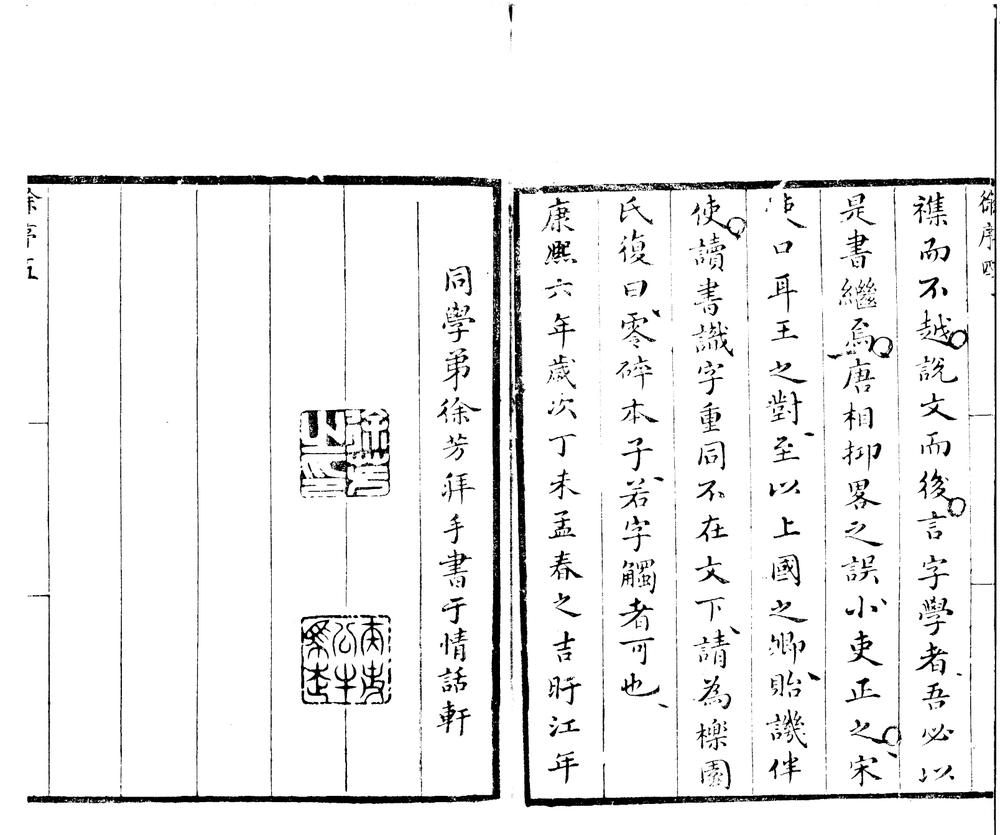 徐序四
襍而不越說文而後言字學者吾必以
是書繼焉唐相抑畧之誤小吏正之宋
使口耳王之對至以上國之卿貽譏伴
使讀書識字重同不在文下請為櫟園
氏復曰零碎本子若字觸者可也
康熙六年歲次丁未孟春之吉盱江年
同學弟徐芳拜手書于情話軒
徐芳
徐序五